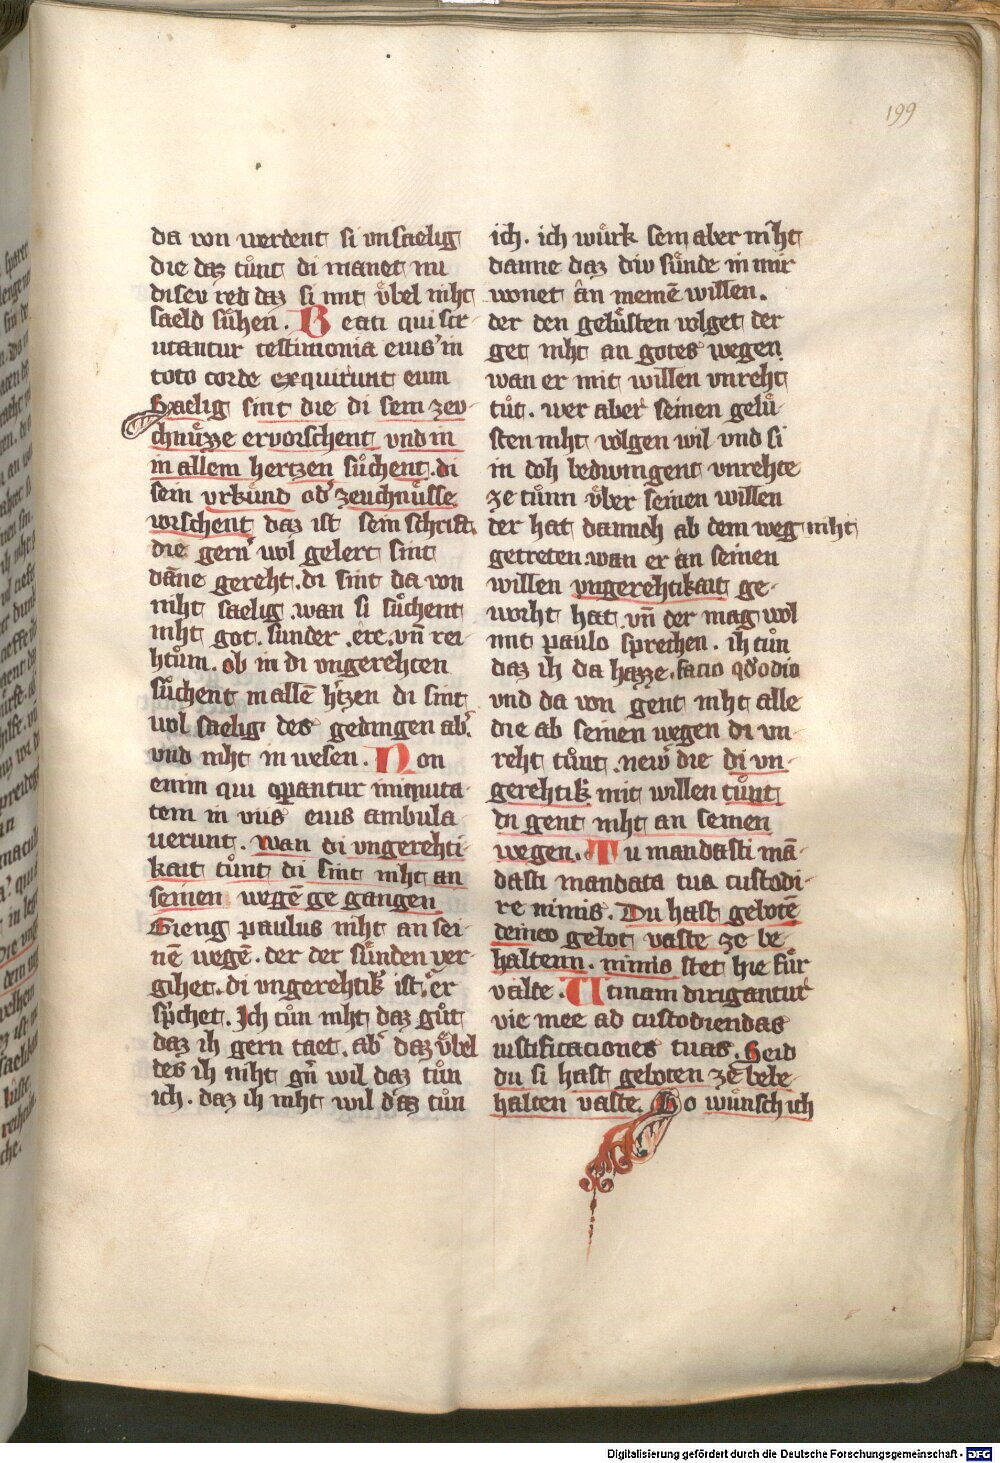 199
da von werdent si vnsaelig
die daz tuͦnt di manet mi
diseu red daz si mit vͤbel niht
saeld suͤhen. Beati qui scr-
utantur testimonia eius in
toto corde exquirunt eum
Saelig sint die di sein zeu-
chnuͤzze ervorschent vnd in
in allem hertzen suͦchent. di
sein vrkuͤnd od' zeuchnuͤsse
vorschent daz ist sein schrift
die gern wol gelert sint
dāne gereht. di sint da von
niht saelig. wan si suͦchent
niht got. sunder. ere. vn̄ rei-
htuͦm. ob in di vngerehten
suͦchent in allē h'tzen di sint
wol saelig des gedingen ab'
vnd niht in wesen. Non
enim qui operantur iniquita-
tem in viis eius ambula
uerunt. wan di vngerehti-
kait tuͦnt di sint niht an
seinen wegē ge gangen
Gieng paulus niht an sei-
nē wegē. der der suͤnden ver-
gihet. di vngerehtik' ist. er
sp'chet. Ich tuͦn niht daz guͦt
daz ih gern taet. ab' daz vͤbel
des ih niht g'n wil daz tuͦn
ich. daz ih niht wil d'az tuͦn
ich. ich wuͤrk sein aber niht
danne daz div suͤnde in mir
wonet ân meinē willen.
der den geluͤsten volget der
get niht an gotes wegen
wan er mit willen vnreht
tuͦt. wer aber seinen geluͤ-
sten niht volgen wil vnd si
in doh bedwingent vnrehte
ze tuͦnn vͤber seinen willen
der hat dannoch ab dem weg niht
getreten. wan er an seinen
willen vngerehtikait ge-
worht hat. vn̄ der mag wol
mit paulo sprechen. ih tuͦn
daz ih da hazze. facio qd odio
vnd da von gent niht alle
die ab seinen wegen di vn-
reht tuͦnt. new' die di vn-
gerehtik' mit willen tuͦnt
di gent niht an seinen
wegen. Tu mandasti mā-
dasti mandata tua custodi-
re nimis. Du hast gebotē
deineo gebot vaste ze be-
haltenn. nimis stet hie fuͤr
valde. Utinam dirigantur
vie mee ad custodiendas
iustificaciones tuas. Seid
du si hast geboten zē behe-
halten vaste. So wuͤnsch ich
Digitalisierung gefördert durch die Deutsche Forschungsgemeinschaft - DFG